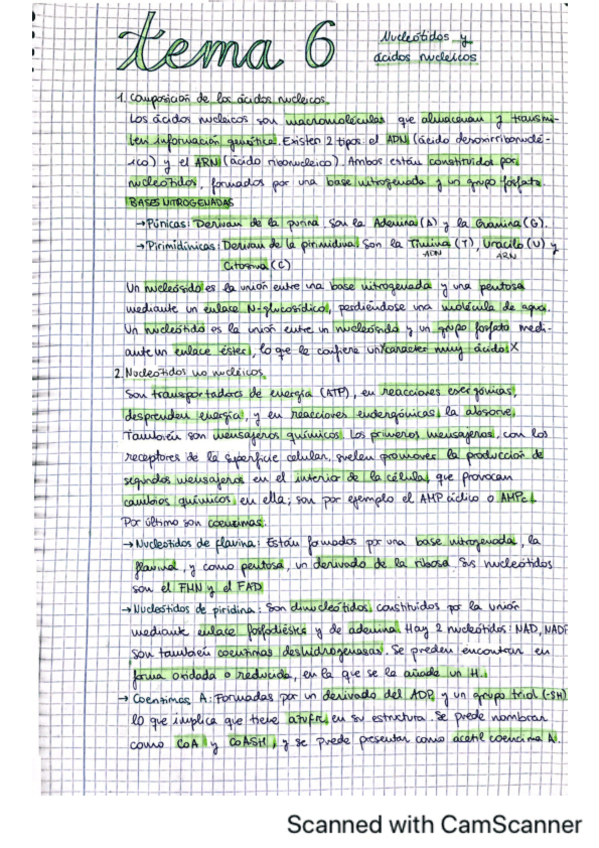 tema 6
Nucleótidos y
ácidos nucleicos
1. Composición de los ácidos nucleicos.
Los ácidos nucleicos son macromoléculas que almacenan y transmi-
ten información genética. Existen 2 tipos: el ADN (ácido desoxirribonuclé-
ico) y el ARN (ácido ribonucleico). Ambos están constituidos por
nucleótidos, formados por una base nitrogenada y un grupo fosfato.
BASES NITROGENADAS
→ Púricas: Derivan de la purina. Son la Adenina (A) y la Guanina (G).
→ Pirimidínicas: Derivan de la pirimidina. Son la Timina (T), Uracilo (U) y
ADN ARN
Citosina (C)
Un nucleósido es la unión entre una base nitrogenada y una pentosa
mediante un enlace N-glucosídico, perdiéndose una molécula de agua.
Un nucleótido es la unión entre un nucleósido y un grupo fosfato medi-
ante un enlace éster, lo que le confiere un carácter muy ácido.
2. Nucleótidos no nucleicos.
Son transportadores de energía (ATP), en reacciones exergónicas,
desprenden energía, y en reacciones endergónicas, la absorve.
También son mensajeros químicos. Los primeros mensajeros, con los
receptores de la superficie celular, suelen promover la producción de
segundos mensajeros en el interior de la célula, que provocan
cambios químicos en ella; son por ejemplo el AMP cíclico o AMPc.
Por último son coenzimas.
→ Nucleótidos de flavina: Están formados por una base nitrogenada, la
flavina, y como pentosa, un derivado de la ribosa. Sus nucleótidos
son el FMN y el FAD
→ Nucleótidos de piridina: Son dinucleótidos constituidos por la unión
mediante enlace fosfodiéster y de adenina. Hay 2 nucleótidos: NAD, NADP
Son también coenzimas deshidrogenasas. Se pueden encontrar en
forma oxidada o reducida, en la que se le añade un H.
→ Coenzimas A: Formadas por un derivado del ADP, y un grupo tiol (-SH)
lo que implica que tiene azufre en su estructura. Se puede nombrar
como CoA y CoASH, y se puede presentar como acetil coenzima A.
Scanned with CamScanner